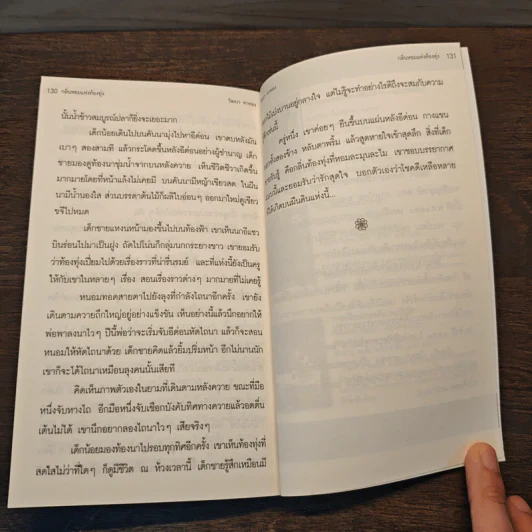 130 กลิ่นหอมแห่งท้องทุ่ง
วัฒนา
นั้นน้ำข้าวสมบูรณ์ปลาก็ยิ่งจะเยอะมาก
เด็กน้อยเดินไปบนคันนามุ่งไปหาอีด่อน เขาตบหลังมัน
เบาๆ สองสามที แล้วกระโดดขึ้นหลังอีด่อนอย่างผู้ชำนาญ เด็ก
ชายมองดูท้องนาชุ่มน้ำจากบนหลังควาย เห็นชีวิตชีวาเกิดขึ้น
มากมายโดยที่หน้าแล้งไม่เคยมี บนคันนามีหญ้าเขียวสด ในผืน
นามีน้ำนองใส ส่วนบรรดาต้นไม้ก็ผลิใบอ่อนๆ ออกมาใหม่ดูเขียว
ขจีไปหมด
เด็กชายแหงนหน้ามองขึ้นไปบนท้องฟ้า เขาเห็นนกอีแซว
บินร่อนไปมาเป็นฝูง ถัดไปโน่นก็กลุ่มนกกระยางขาว เขายอมรับ
ว่าท้องทุ่งเปี่ยมไปด้วยเรื่องราวที่น่ารื่นรมย์ และที่แห่งนี้ยังเป็นครู
ให้กับเขาในหลายๆ เรื่อง สอนเรื่องราวต่างๆ มากมายที่ไม่เคยรู้
หนอมทอดสายตาไปยังลุงที่กำลังไถนาอีกครั้ง เขายัง
เดินตามควายถึกใหญ่อยู่อย่างแข็งขัน เห็นอย่างนี้แล้วนึกอยากให้
พ่อพาลงนาไวๆ ปีนี้พ่อว่าจะเริ่มจับอีด่อนหัดไถนา แล้วก็จะสอน
หนอมให้หัดไถนาด้วย เด็กชายคิดแล้วยิ้มปริ่มหน้า อีกไม่นานนัก
เขาก็จะได้ไถนาเหมือนลุงคนนั้นเสียที
คิดเห็นภาพตัวเองในยามที่เดินตามหลังควาย ขณะที่มือ
หนึ่งจับหางไถ อีกมือหนึ่งจับเชือกบังคับทิศทางควายแล้วอดตื่น
เต้นไม่ได้ เขานึกอยากลองไถนาไวๆ เสียจริงๆ
เด็กน้อยมองท้องนาไปรอบทุกทิศอีกครั้ง เขาเห็นท้องทุ่งที่
สดใสไม่ว่าที่ใดๆ ก็ดูมีชีวิต ณ ห้วงเวลานี้ เด็กชายรู้สึกเหมือนมี
กลิ่นหอมแห่งท้องทุ่ง 131
เบ่งบานอยู่กลางใจ แต่ไม่รู้จะทำอย่างไรดีถึงจะสมกับความ
ครู่หนึ่ง เขาค่อยๆ ยืนขึ้นบนแผ่นหลังอีด่อน กางแขน
ทั้งสองข้าง หลับตาพริ้ม แล้วสูดหายใจเข้าสุดลึก สิ่งที่เด็ก
คือกลิ่นท้องทุ่งที่หอมละมุนละไม เขาชอบบรรยากาศ
และยอมรับว่ารักสุดใจ บอกตัวเองว่าโชคดีเหลือหลาย
บนผืนดินแห่งนี้...